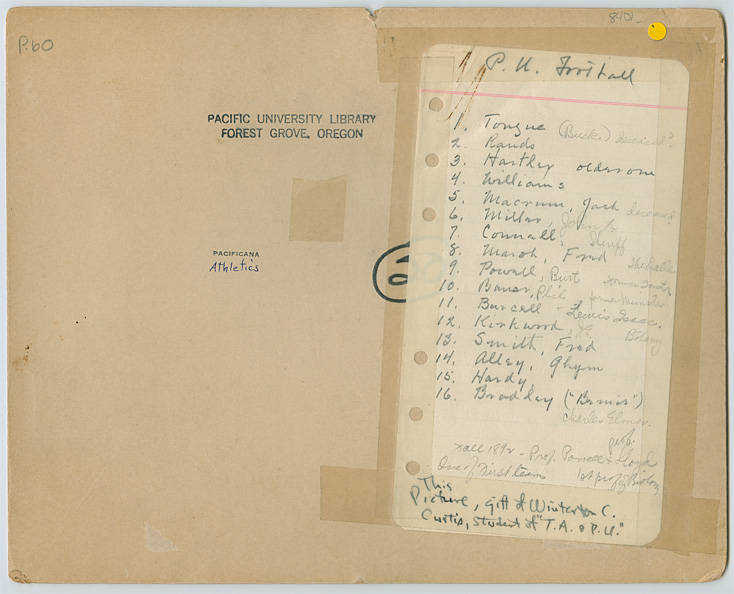 P.60
8401
PACIFIC UNIVERSITY LIBRARY
FOREST GROVE, OREGON
PACIFICANA
Athletics
P. U. Football
1. Tongue (Buck)
2. Rands
3. Hartley older one
4. Williams
5. Macrum, Jack deceased?
6. Millar,
7. Connall, Sheriff
8. Marsh, Fred
9. Powell, Burt
10. Bauer, Phil former minister
11. Burcell - Lewis Isaac.
12. Kirkwood, Botany
13. Smith, Fred
14. Alley, Ghym
15. Hardy
16. Bradley ("Bemis")
Charles Elmer.
Fall 1892 - Prof. Powell - Lloyd
One of First teams 1st prof of Biology
This
Picture, gift of Winterton C.
Curtis, student of "T.A. & P.U."